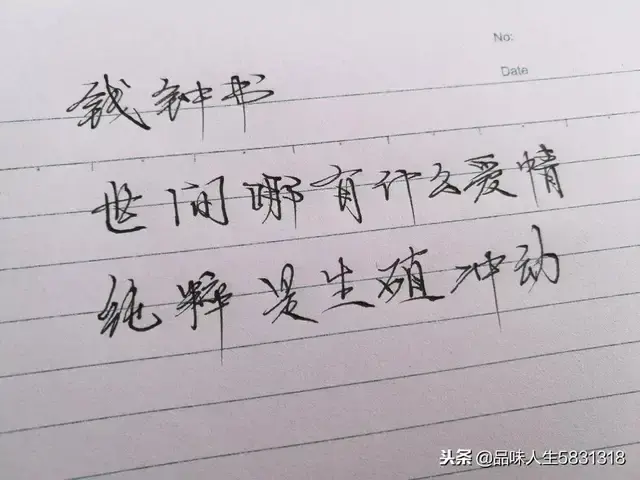 No:
Date
钱钟书
世间哪有什么爱情
纯粹是生殖冲动
头条 @品味人生5831318